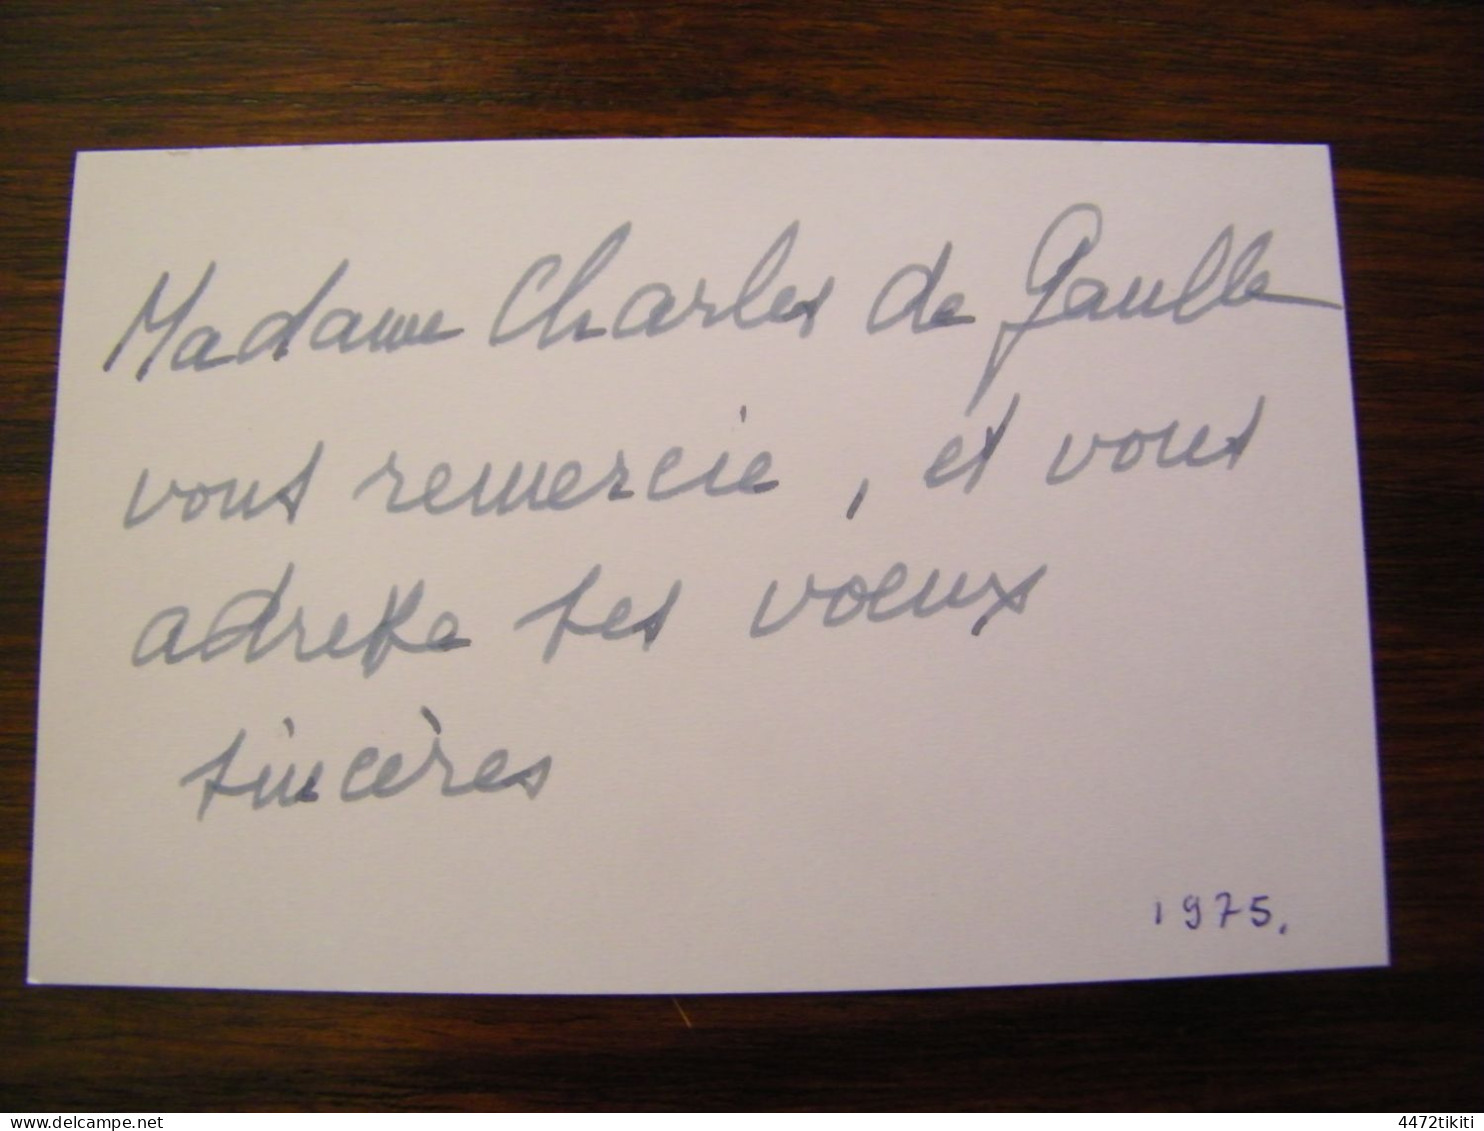 Madame Charles de Gaulle
vous remercie, et vous
adresse ses voeux
sincères
1975.
delcampe.net
4472tikiti